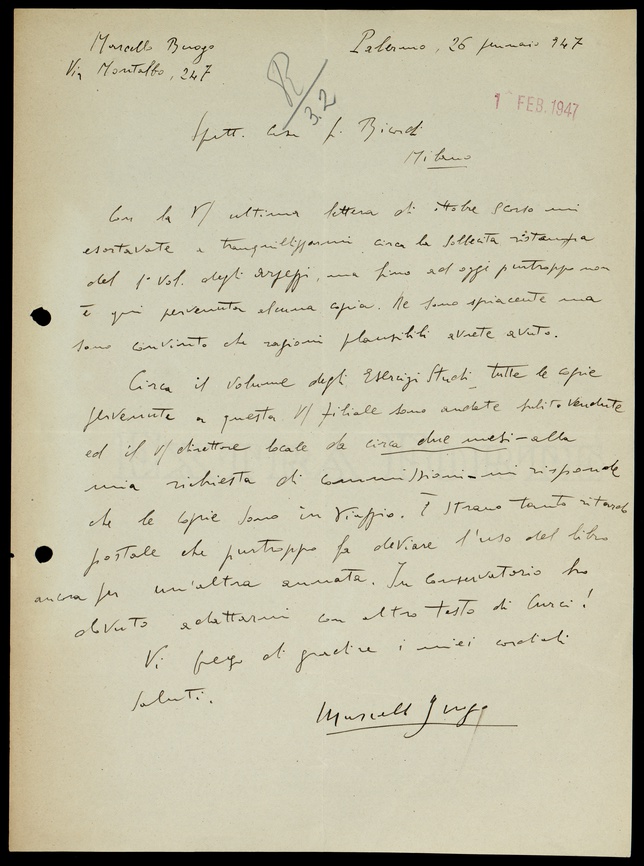 Marcello Burgo
Via Montalbo, 247
Palermo, 26 gennaio 947
R
3.2
1 FEB. 1947
Spett. Casa G. Ricordi
Milano
Con la V/ ultima lettera di ottobre scorso mi
esortavate a tranquillizzarmi circa la sollecita ristampa
del 1° Vol. degli arpeggi, ma fino ad oggi purtroppo non
è qui pervenuta alcuna copia. Ne sono spiacente ma
sono convinto che ragioni plausibili avrete avuto.
Circa il volume degli Esercizi Studi tutte le copie
pervenute a questa V/ filiale sono andate subito vendute
ed il V/ direttore locale da circa due mesi - alla
mia richiesta di commissioni - mi risponde
che le copie sono in viaggio. È strano tanto ritardo
postale che purtroppo fa deviare l'uso del libro
ancora per un'altra annata. In conservatorio ho
dovuto adattarmi con altro testo di Curci!
Vi prego di gradire i miei cordiali
saluti.